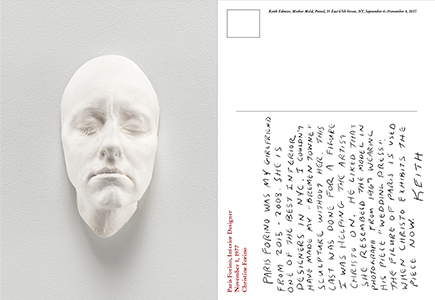 Keith Edmier, Mother Mold, Petzel, 35 East 67th Street, NY, September 6–November 4, 2017
Paris Forino, Interior Designer
November 1, 1977
Christine Forino
PARIS FORINO WAS MY GIRLFRIEND
FROM 2013 - 2008. SHE IS
ONE OF THE BEST INTERIOR
DESIGNERS IN NYC. I COULDN'T
HAVE MADE MY
SCULPTURE WITHOUT HER. THIS
CAST WAS DONE FOR A FIGURE
I WAS HELPING THE ARTIST
CHRISTO ON. HE LIKED THAT
SHE RESEMBLED THE MODEL IN
PHOTOGRAPH FROM 1967 WEARING
HIS PIECE "WEDDING DRESS".
THE FIGURE OF PARIS IS USED
WHEN CHRISTO EXHIBITS THE
PIECE NOW. KEITH